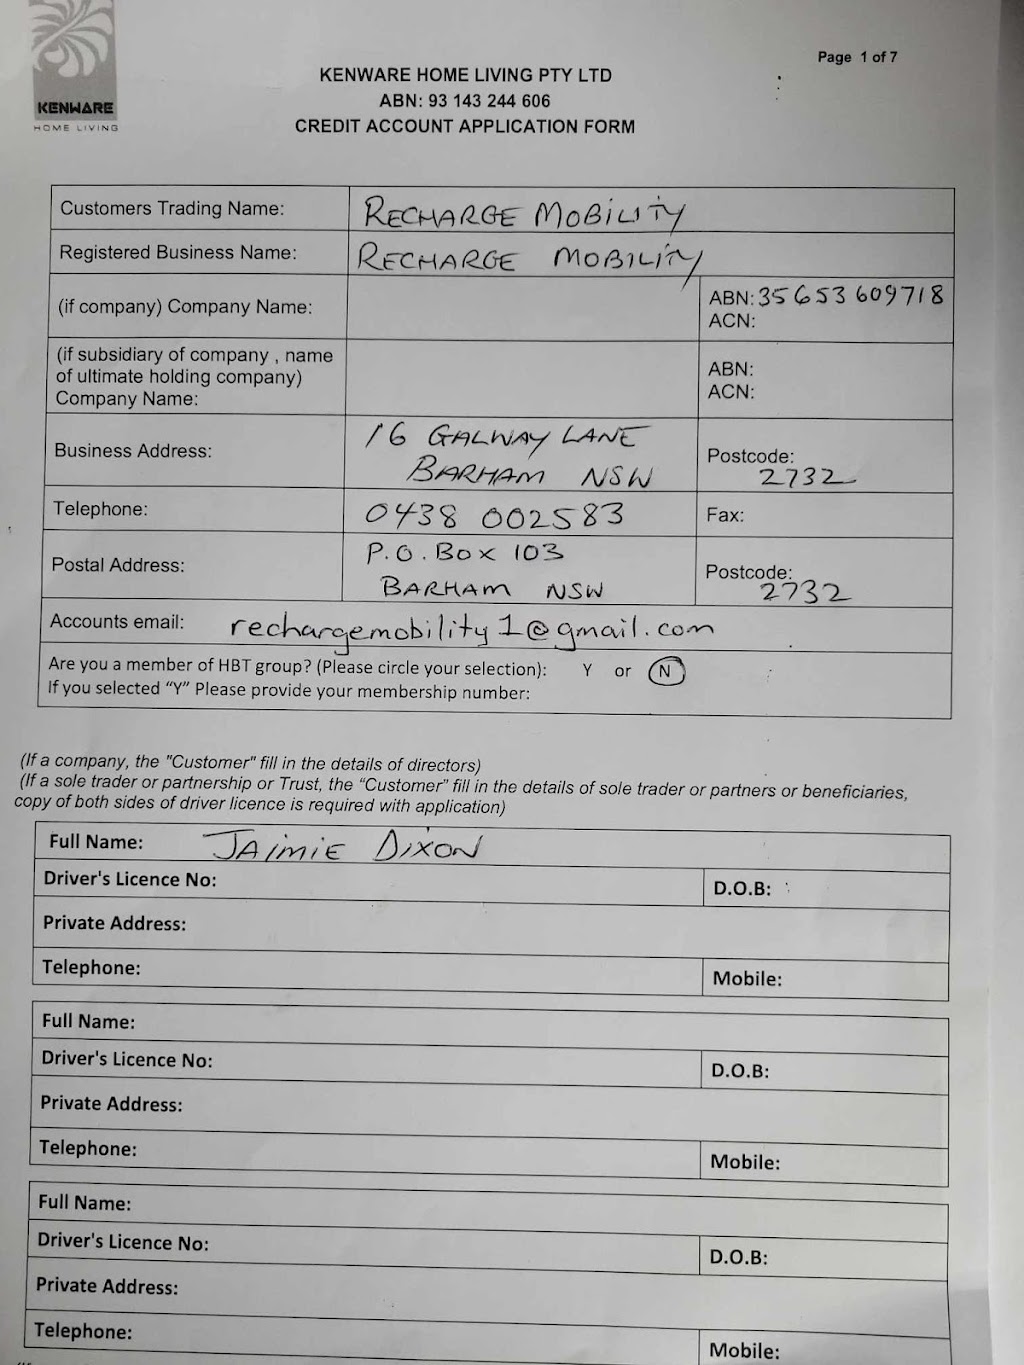 KENWARE
HOME LIVING
Page 1 of 7
KENWARE HOME LIVING PTY LTD
ABN: 93 143 244 606
CREDIT ACCOUNT APPLICATION FORM
Customers Trading Name: RECHARGE MOBILITY
Registered Business Name: RECHARGE MOBILITY
(if company) Company Name:
ABN: 35 653 609 718
ACN:
(if subsidiary of company , name
of ultimate holding company)
Company Name:
ABN:
ACN:
Business Address: 16 GALWAY LANE
BARHAM NSW
Postcode:
2732
Telephone: 0438 002583 Fax:
Postal Address: P.O. BOX 103
BARHAM NSW
Postcode:
2732
Accounts email: rechargemobility1@gmail.com
Are you a member of HBT group? (Please circle your selection): Y or N
If you selected “Y” Please provide your membership number:
(If a company, the "Customer" fill in the details of directors)
(If a sole trader or partnership or Trust, the “Customer” fill in the details of sole trader or partners or beneficiaries,
copy of both sides of driver licence is required with application)
Full Name: JAIMIE DIXON
Driver's Licence No: D.O.B:
Private Address:
Telephone: Mobile:
Full Name:
Driver's Licence No: D.O.B:
Private Address:
Telephone: Mobile:
Full Name:
Driver's Licence No: D.O.B:
Private Address:
Telephone: Mobile: